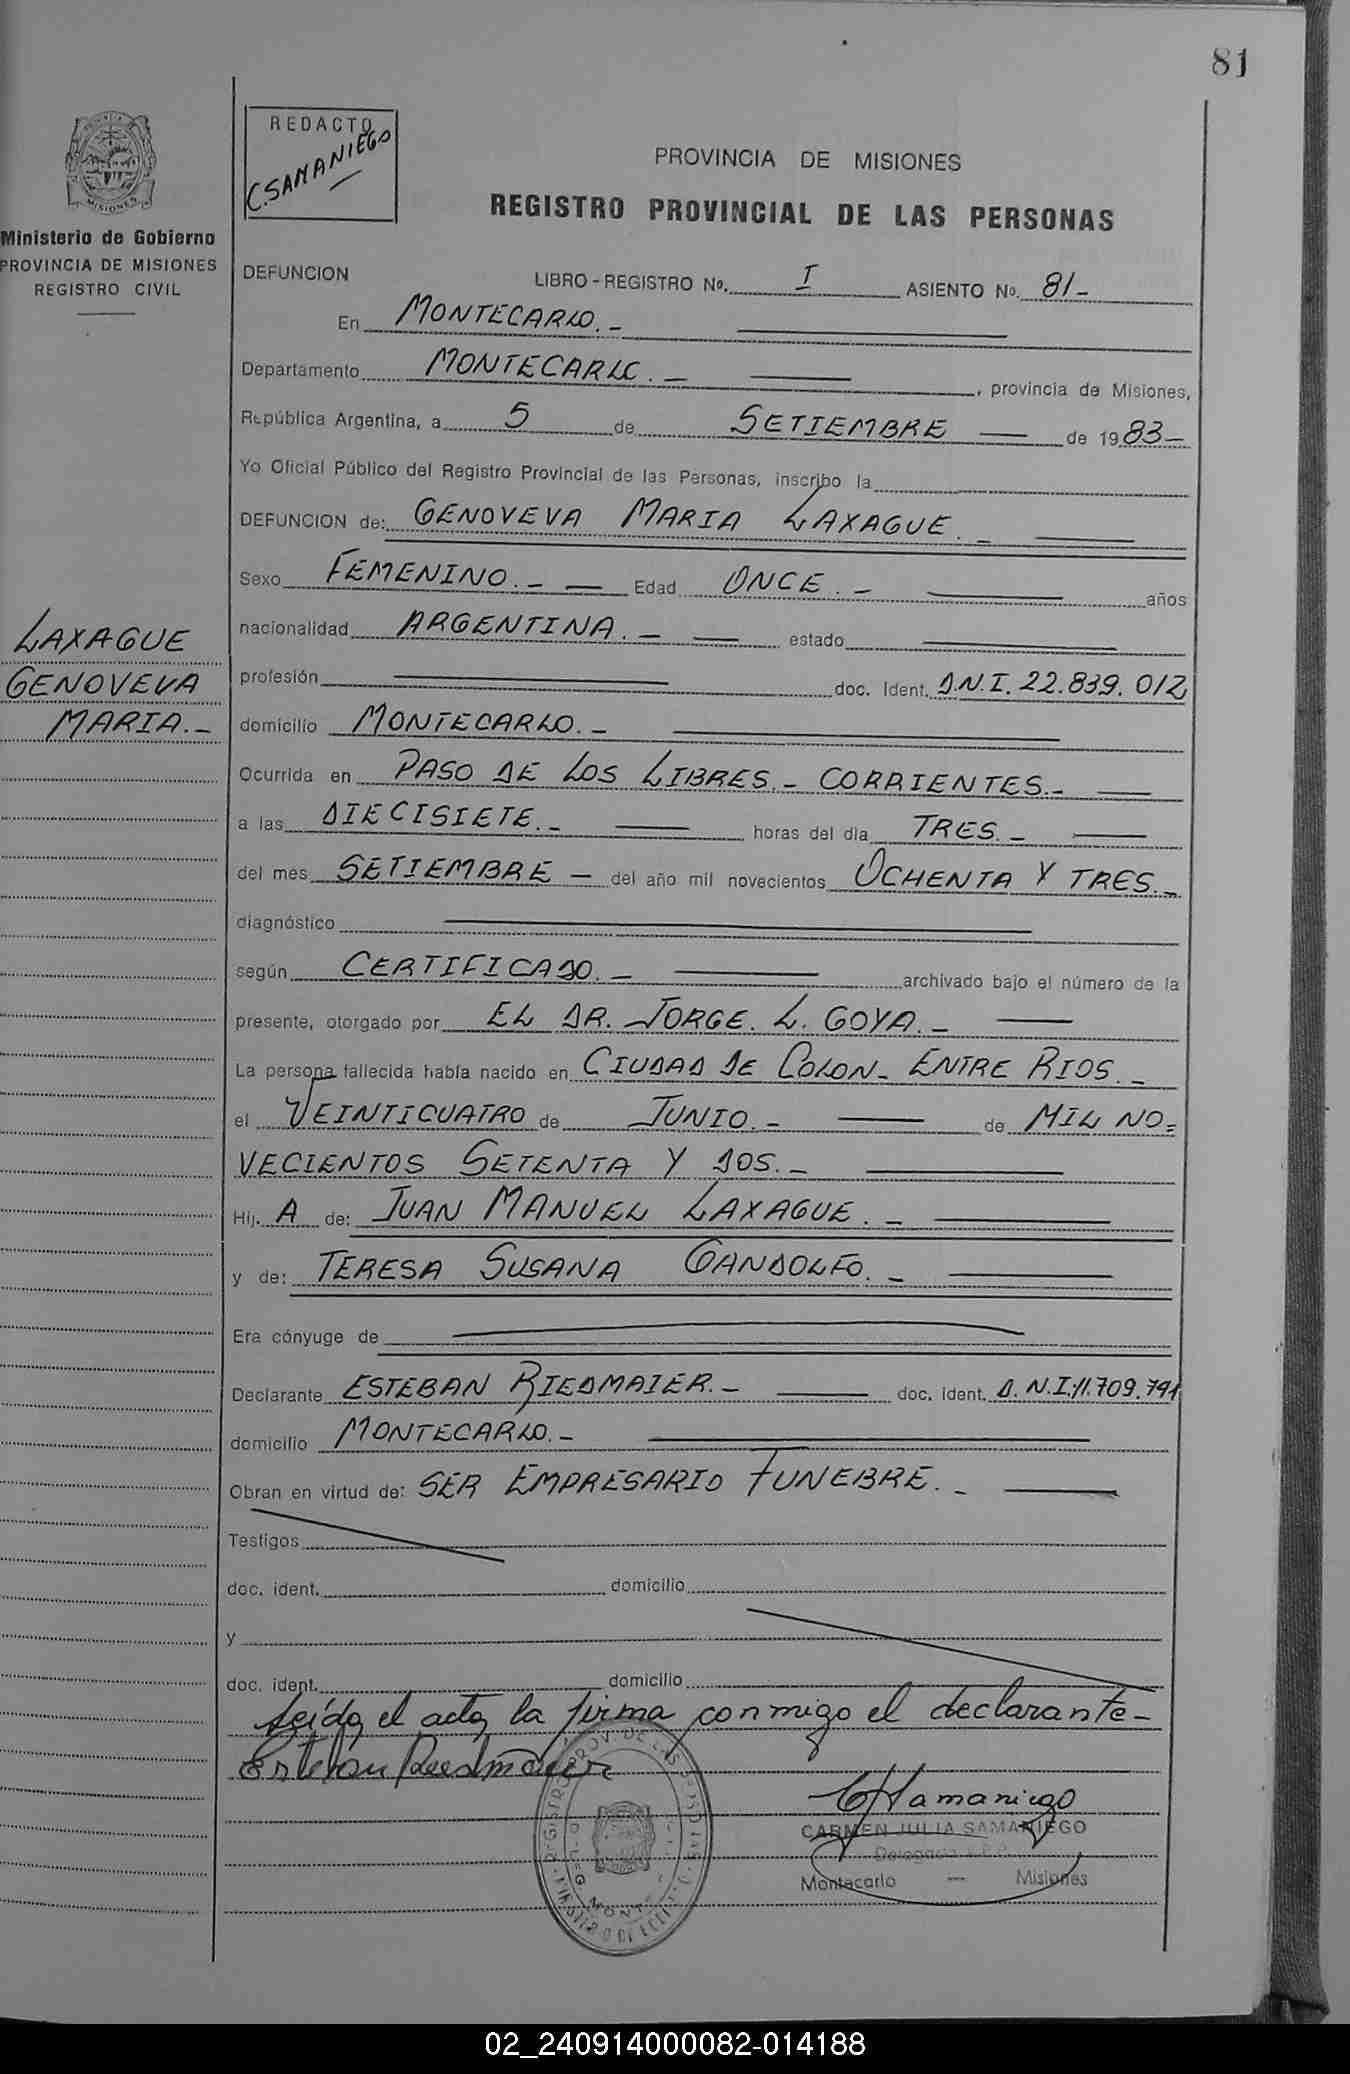 81
REDACTO
C. SAMANIEGO
PROVINCIA DE MISIONES
REGISTRO PROVINCIAL DE LAS PERSONAS
MISIONES
Ministerio de Gobierno
PROVINCIA DE MISIONES
REGISTRO CIVIL
DEFUNCION LIBRO-REGISTRO Nº. I ASIENTO Nº. 81-
En MONTECARLO.-
Departamento MONTECARLO.- , provincia de Misiones,
República Argentina, a 5 de SETIEMBRE de 1983-
Yo Oficial Público del Registro Provincial de las Personas, inscribo la
DEFUNCION de: GENOVEVA MARIA LAXAGUE.-
Sexo FEMENINO.- Edad ONCE.- años
nacionalidad ARGENTINA.- estado
profesión doc. Ident. D.N.I. 22.839.012
domicilio MONTECARLO.-
LAXAGUE
GENOVEVA
MARIA.-
Ocurrida en PASO DE LOS LIBRES.- CORRIENTES.-
a las DIECISIETE.- horas del día TRES.-
del mes SETIEMBRE - del año mil novecientos OCHENTA Y TRES.-
diagnóstico
según CERTIFICADO.- archivado bajo el número de la
presente, otorgado por EL DR. JORGE. L. GOYA.-
La persona fallecida había nacido en CIUDAD DE COLON- ENTRE RIOS.-
el VEINTICUATRO de JUNIO.- de MIL NO=
VECIENTOS SETENTA Y DOS.-
Hij. A de: JUAN MANUEL LAXAGUE.-
y de: TERESA SUSANA GANDOLFO.-
Era cónyuge de
Declarante ESTEBAN RIEDMAIER.- doc. ident. D.N.I. 11.709.791
domicilio MONTECARLO.-
Obran en virtud de: SER EMPRESARIO FUNEBRE.-
Testigos
doc. ident. domicilio
y
doc. ident. domicilio
Leída el acta, la firma conmigo el declarante-
Esteban Riedmaier
CJSamaniego
CARMEN JULIA SAMANIEGO
Delegada R.P.P.
Montecarlo — Misiones
02_240914000082-014188